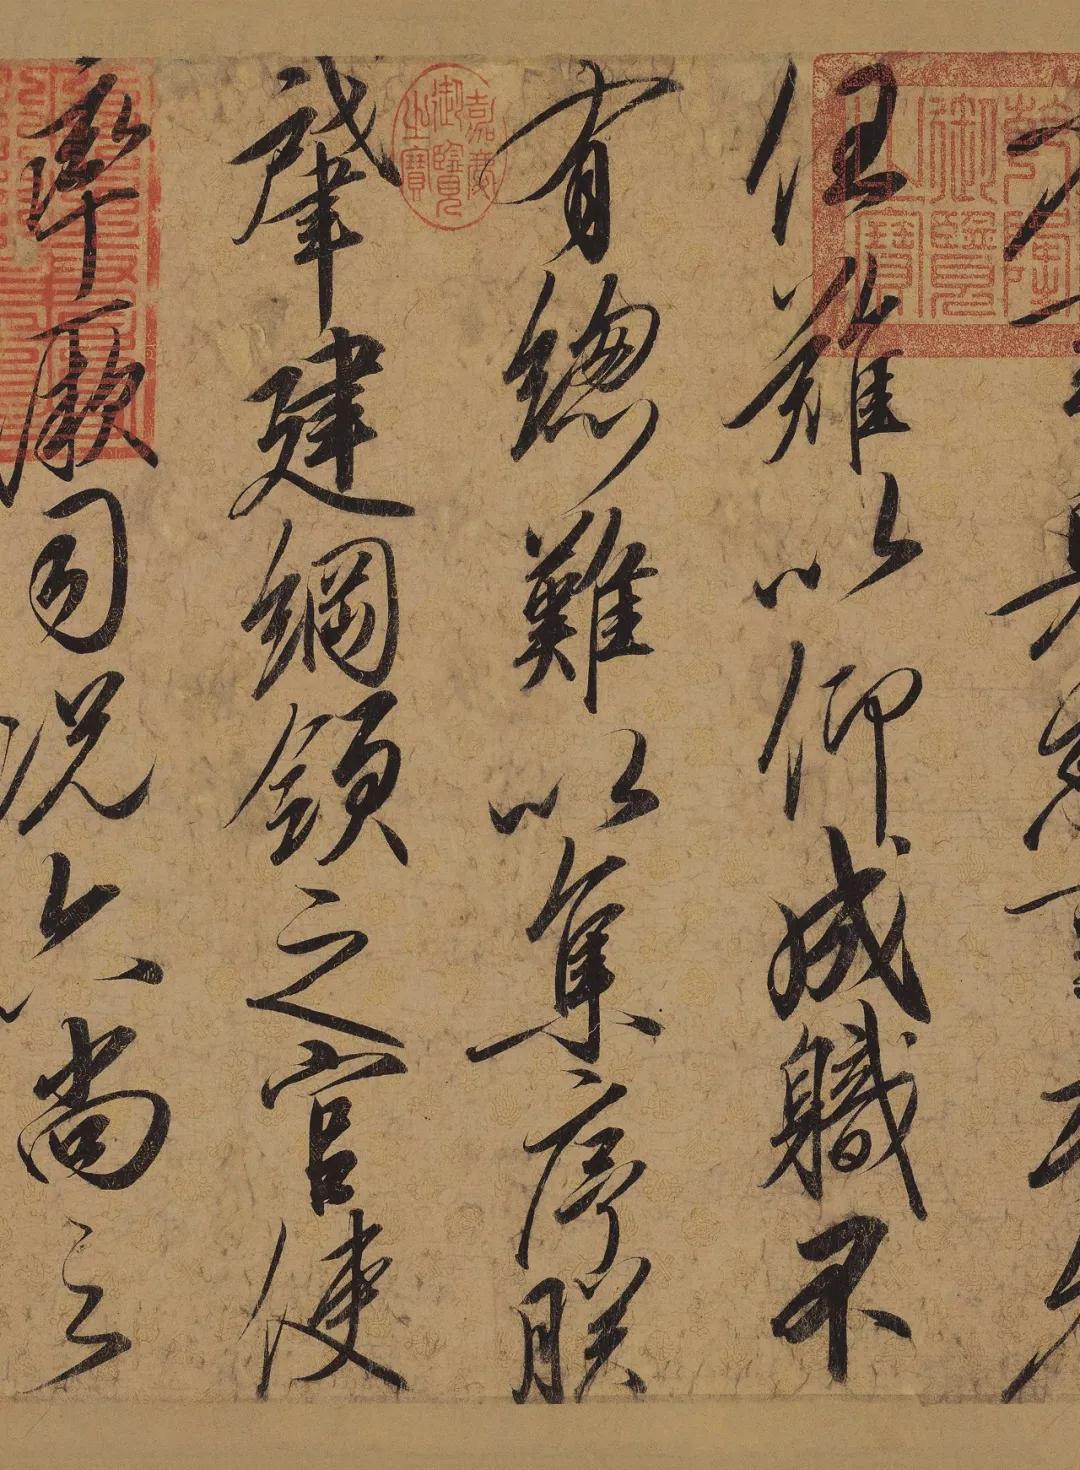 乾隆御覽之寶
任難以仰成職不
有總難以集序朕
嘉慶御覽之寶
肇建綱領之官使
率厥司況六尚之